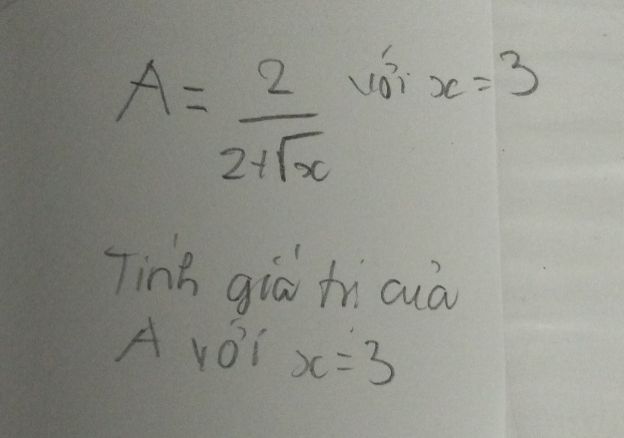 A = 2/(2+√x) với x = 3
Tính giá trị của
A với x = 3